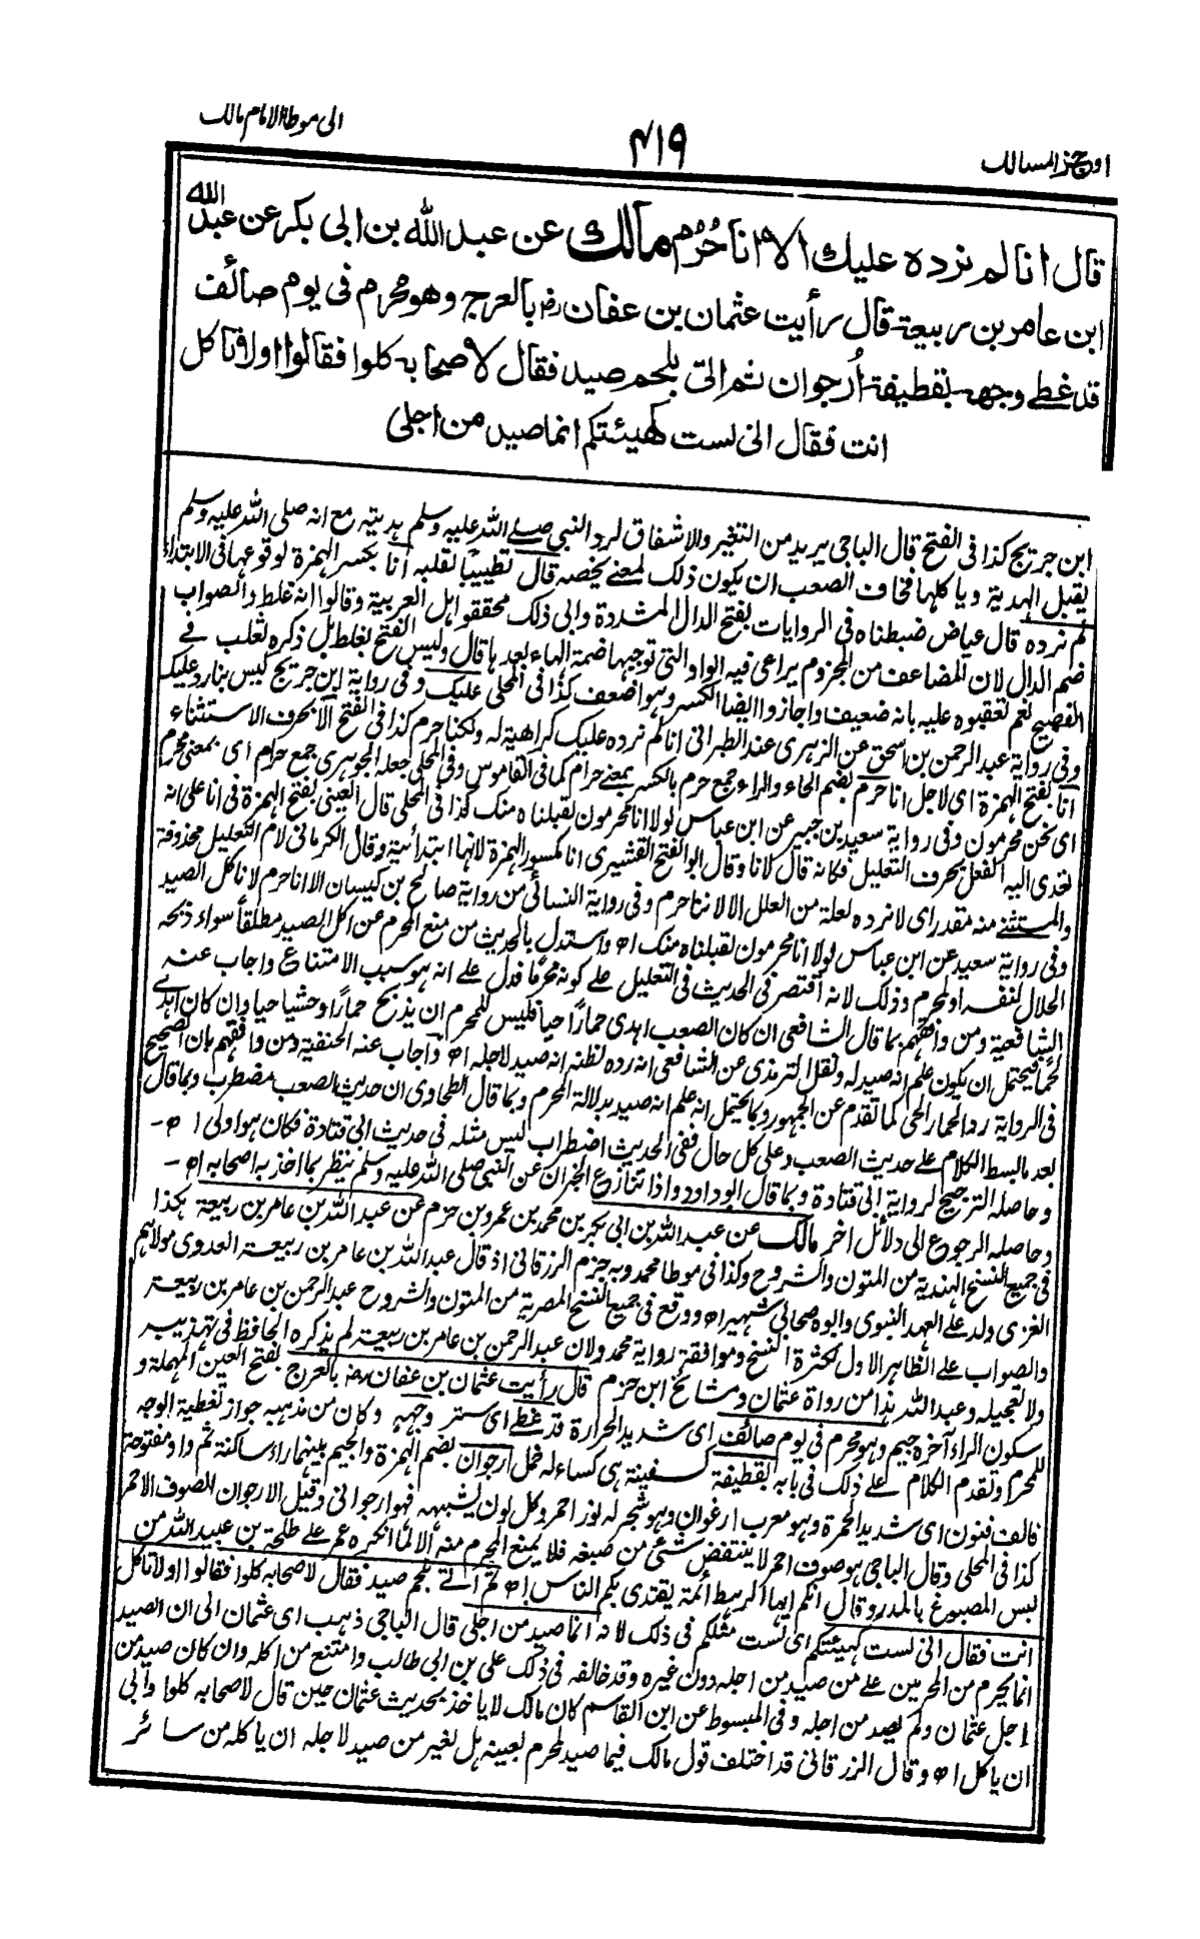 اوجز المسالك
۴۱۹
الى موطا الامام مالك
قال انا لم نرده عليك الا انا حُرُم مالك عن عبد الله بن ابى بكر عن عبد الله
ابن عامر بن ربيعة قال رأيت عثمان بن عفان رض بالعرج وهو محرم فى يوم صائف
قد غطى وجهه بقطيفة أرجوان ثم اتى بلحم صيد فقال لاصحابه كلوا فقالوا اولا تاكل
انت فقال انى لست كهيئتكم انما صيد من اجلى
ابن جريج كذا فى الفتح قال الباجى يريد من التغير والاشفاق لرد النبى صلى الله عليه وسلم هديته مع انه صلى الله عليه وسلم
يقبل الهدية وياكلها فخاف الصعب ان يكون ذلك لمعنى يخصه قال تطييبا لقلبه انا بكسر الهمزة لوقوعها فى الابتداء
لم نرده قال عياض ضبطناه فى الروايات بفتح الدال المشددة وابى ذلك محققو اهل العربية وقالوا انه غلط والصواب
ضم الدال لان المضاعف من المجزوم يراعى فيه الواو التى توجبها ضمة الهاء بعدها قال وليس الفتح بغلط بل ذكره ثعلب فى
الفصيح نعم تعقبوه عليه بانه ضعيف واجازوا ايضا الكسر وهو اضعف كذا فى المحلى عليك وفى رواية ابن جريج ليس بنا رد عليك
وفى رواية عبد الرحمن بن اسحق عن الزهرى عند الطبرانى انا لم نرده عليك كراهية له ولكنا حرم كذا فى الفتح الا بحرف الاستثناء
انا بفتح الهمزة اى لاجل انا حرم بضم الحاء والراء جمع حرم بالكسر بمعنى حرام كما فى القاموس وفى المحلى جعله الجوهرى جمع حرام اى بمعنى محرم
اى نحن محرمون وفى رواية سعيد بن جبير عن ابن عباس لولا انا محرمون لقبلناه منك كذا فى المحلى قال العينى بفتح الهمزة فى انا على انه
تعدى اليه الفعل بحرف التعليل فكانه قال لانا وقال ابو الفتح القشيرى انا مكسور الهمزة لانها ابتدائية وقال الكرمانى لام التعليل محذوفة
والمستثنى منه مقدر اى لا نرده لعلة من العلل الا لاننا حرم وفى رواية النسائى من رواية صالح بن كيسان الا انا حرم لا ناكل الصيد
وفى رواية سعيد عن ابن عباس لولا انا محرمون لقبلناه منك اه واستدل بالحديث من منع المحرم من اكل الصيد مطلقا سواء ذبحه
الحلال لنفسه او لمحرم وذلك لانه اقتصر فى الحديث فى التعليل على كونه محرما فدل على انه هو سبب الامتناع واجاب عنه
الشافعية ومن وافقهم بما قال الشافعى ان كان الصعب اهدى حمارا حيا فليس للمحرم ان يذبح حمارا وحشيا حيا وان كان اهدى
لحما فيحتمل ان يكون علم انه صيد له ونقل الترمذى عن الشافعى انه رده لظنه انه صيد لاجله اه واجاب عنه الحنفية ومن وافقهم بان الصحيح
فى الرواية رد الحمار الحى كما تقدم عن الجمهور وبما يحتمل انه علم انه صيد بدلالة المحرم وبما قال الطحاوى ان حديث الصعب مضطرب وبما قال
بعد ما بسط الكلام على حديث الصعب وعلى كل حال ففى الحديث اضطراب ليس مثله فى حديث ابى قتادة فكان هو اولى اه -
وحاصله الترجيح لرواية ابى قتادة وبما قال ابو داود واذا تنازع الخبران عن النبى صلى الله عليه وسلم ينظر بما اخذ به اصحابه اه -
وحاصله الرجوع الى دلائل اخر مالك عن عبد الله بن ابى بكر بن محمد بن عمرو بن حزم عن عبد الله بن عامر بن ربيعة هكذا
فى جميع النسخ الهندية من المتون والشروح وكذا فى موطا محمد وبه جزم الزرقانى اذ قال عبد الله بن عامر بن ربيعة العدوى مولاهم
العنزى ولد على العهد النبوى وابوه صحابى شهير اه ووقع فى جميع النسخ المصرية من المتون والشروح عبد الرحمن بن عامر بن ربيعة
والصواب على الظاهر الاول لكثرة النسخ وموافقة رواية محمد ولان عبد الرحمن بن عامر بن ربيعة لم يذكره الحافظ فى تهذيبه
ولا تعجيله وعبد الله هذا من رواة عثمان ومشائخ ابن حزم قال رأيت عثمان بن عفان رض بالعرج بفتح العين المهملة و
سكون الراء آخره جيم وهو محرم فى يوم صائف اى شديد الحرارة قد غطى اى ستر وجهه وكان من مذهبه جواز تغطية الوجه
للمحرم وتقدم الكلام على ذلك فى بابه بقطيفة كسفينة هى كساء له خمل ارجوان بضم الهمزة والجيم بينهما راء ساكنة ثم واو مفتوحة
فالف فنون اى شديد الحمرة وهو معرب ارغوان وهو شجر له نور احمر وكل لون يشبهه فهو ارجوانى وقيل الارجوان الصوف الاحمر
كذا فى المحلى وقال الباجى هو صوف احمر لا ينتفض شئ من صبغه فلا يمنع المحرم منه الا لما انكره عمر على طلحة بن عبيد الله من
لبس المصبوغ بالمدر وقال انكم ايها الرهط ائمة يقتدى بكم الناس اه ثم اتى بلحم صيد فقال لاصحابه كلوا فقالوا اولا تاكل
انت فقال انى لست كهيئتكم اى لست مثلكم فى ذلك لانه انما صيد من اجلى قال الباجى ذهب اى عثمان الى ان الصيد
انما يحرم من المحرمين على من صيد من اجله دون غيره وقد خالفه فى ذلك على بن ابى طالب وامتنع من اكله وان كان صيد من
اجل عثمان ولم يصد من اجله وفى المبسوط عن ابن القاسم كان مالك لا ياخذ بحديث عثمان حين قال لاصحابه كلوا وابى
ان ياكل اه وقال الزرقانى قد اختلف قول مالك فيما صيد لمحرم بعينه هل لغير من صيد لاجله ان ياكله من سائر